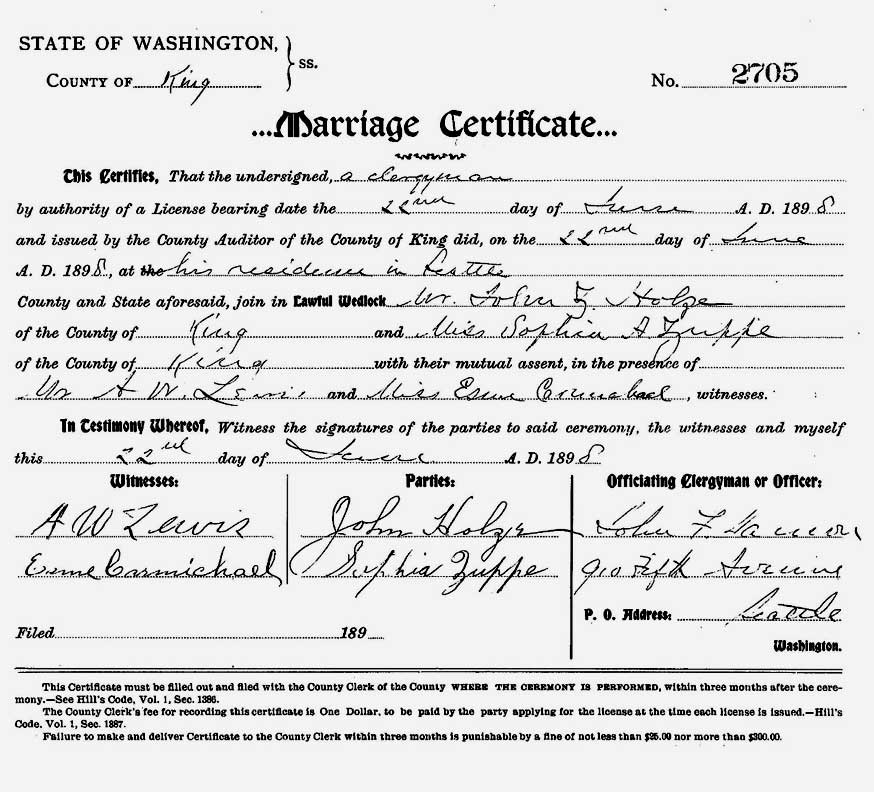 STATE OF WASHINGTON, } ss.
COUNTY OF King
No. 2705
...Marriage Certificate...
This Certifies, That the undersigned, a clergyman
by authority of a License bearing date the 22nd day of June A. D. 1898
and issued by the County Auditor of the County of King did, on the 22nd day of June
A. D. 1898, at the his residence in Seattle
County and State aforesaid, join in Lawful Wedlock Mr. John Z. Holze
of the County of King and Miss Sophia A Zuppe
of the County of King with their mutual assent, in the presence of
Mr A W. Lewis and Miss Esme Carmichael, witnesses.
In Testimony Whereof, Witness the signatures of the parties to said ceremony, the witnesses and myself
this 22nd day of June A. D. 1898
Witnesses:
A W Lewis
Esme Carmichael
Parties:
John Holze
Sophia Zuppe
Officiating Clergyman or Officer:
John F. Damon
910 Fifth Avenue
P. O. Address: Seattle
Washington.
Filed 189
This Certificate must be filled out and filed with the County Clerk of the County WHERE THE CEREMONY IS PERFORMED, within three months after the cere-
mony.—See Hill's Code, Vol. 1, Sec. 1386.
The County Clerk's fee for recording this certificate is One Dollar, to be paid by the party applying for the license at the time each license is issued.—Hill's
Code. Vol. 1, Sec. 1387.
Failure to make and deliver Certificate to the County Clerk within three months is punishable by a fine of not less than $25.00 nor more than $300.00.